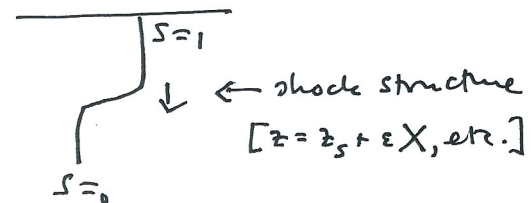 S=1
← shock structure
[z = z_s + εX, etc.]
S=0